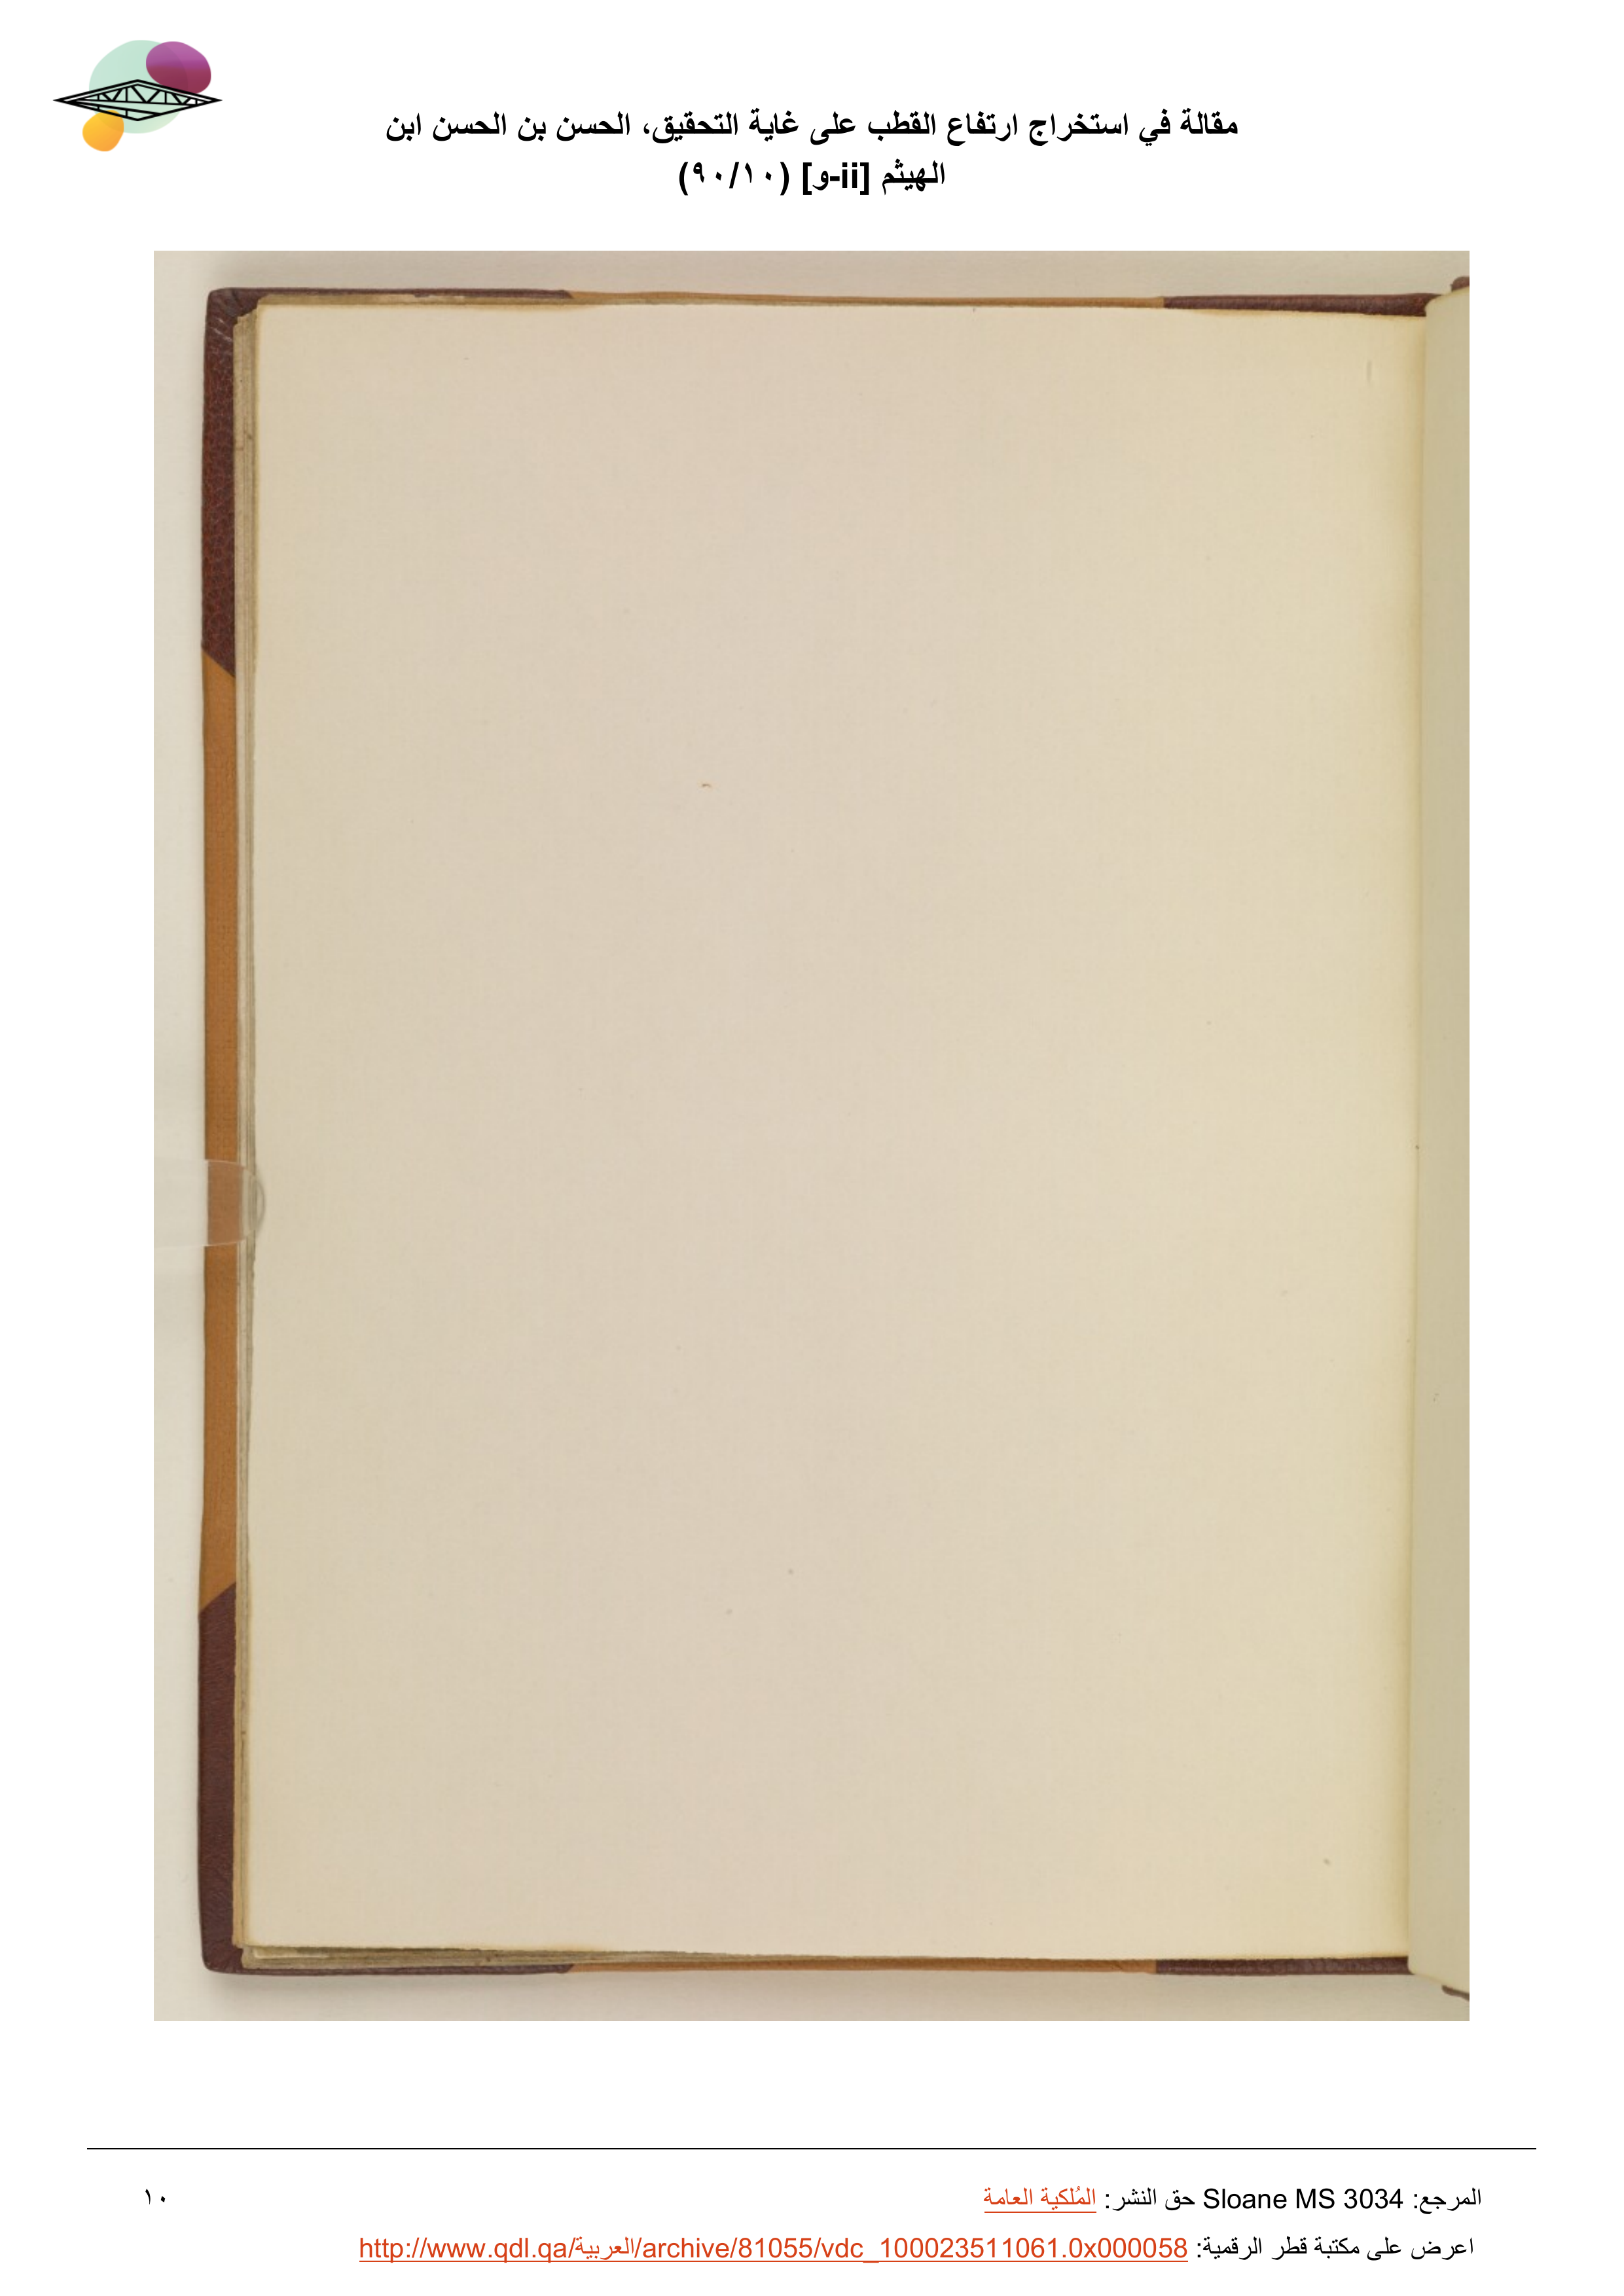 مقالة في استخراج ارتفاع القطب على غاية التحقيق، الحسن بن الحسن ابن
الهيثم [ii-و] (٩٠/١٠)
المرجع: Sloane MS 3034 حق النشر: المُلكية العامة
١٠
اعرض على مكتبة قطر الرقمية: http://www.qdl.qa/العربية/archive/81055/vdc_100023511061.0x000058